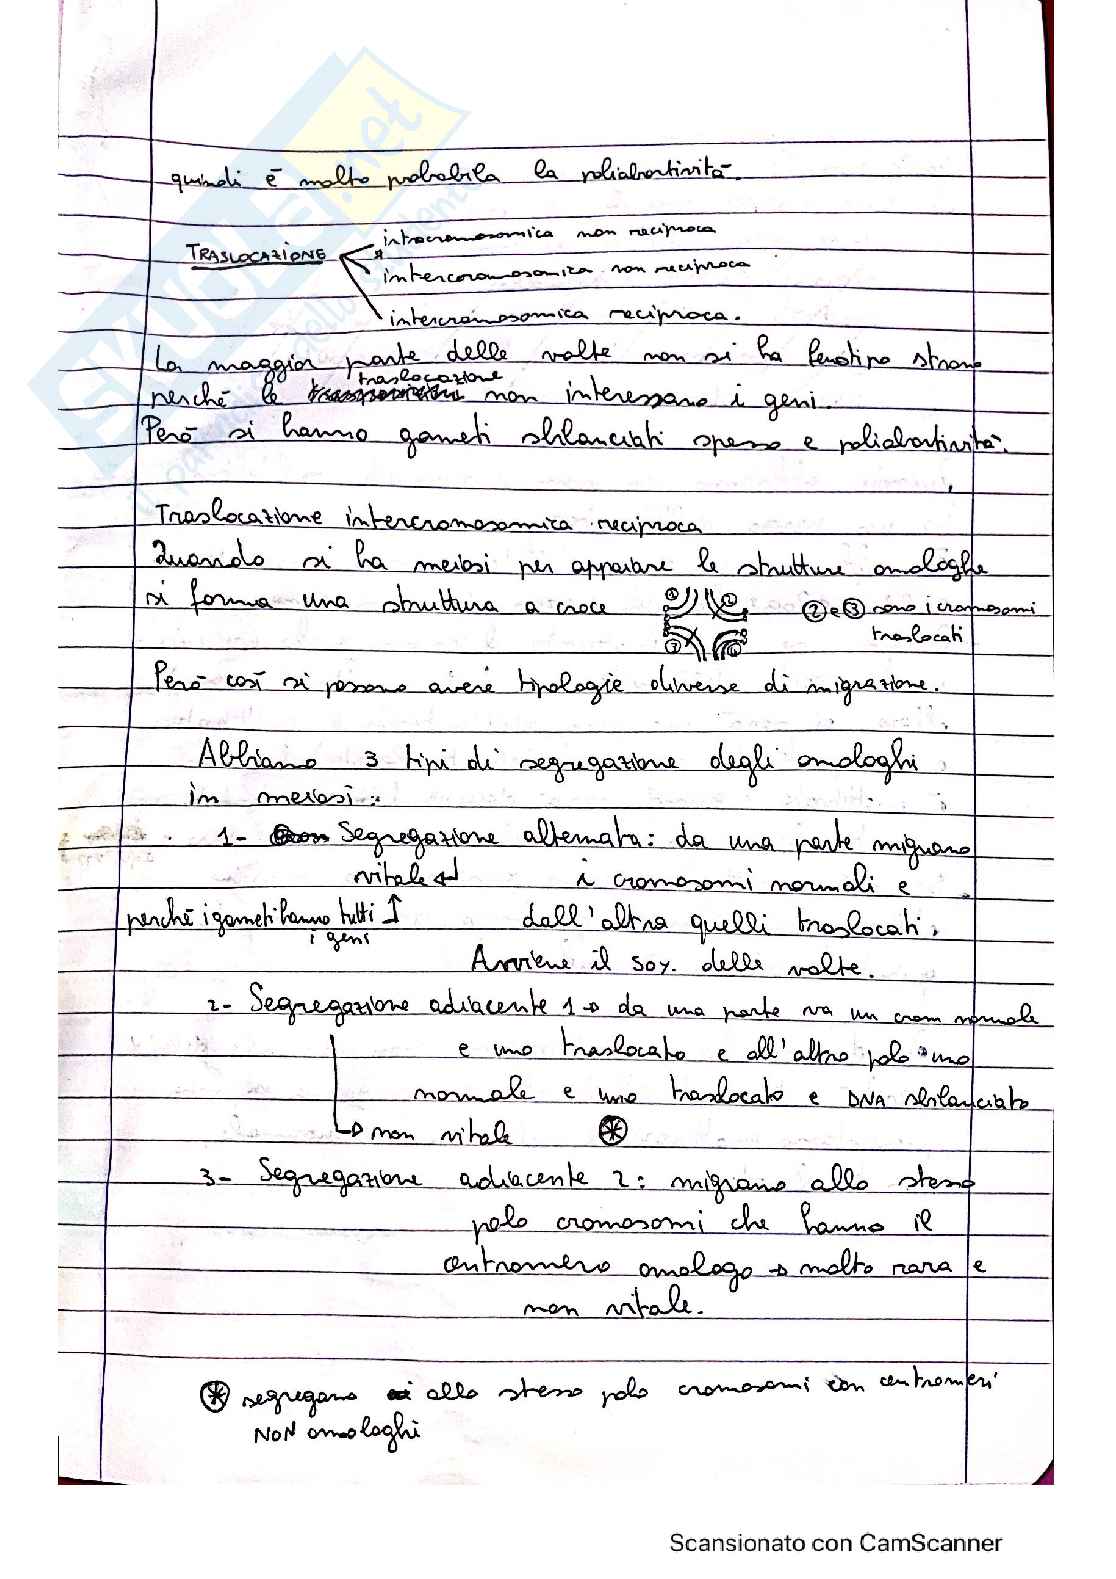 quindi è molto probabile la poliabortività.
TRASLOCAZIONE
intracromosomica non reciproca
intercromosomica non reciproca
intercromosomica reciproca.
La maggior parte delle volte non si ha fenotipo strano
traslocazione
perché le non interessano i geni.
Però si hanno gameti sbilanciati spesso e poliabortività.
Traslocazione intercromosomica reciproca
Quando si ha meiosi per appaiare le strutture omologhe
si forma una struttura a croce 1 2 2 e 3 sono i cromosomi
3 4 traslocati
Però così si possono avere tipologie diverse di migrazione.
Abbiamo 3 tipi di segregazione degli omologhi
in meiosi:
1- Segregazione alternata: da una parte migrano
vitale ↵ i cromosomi normali e
perché i gameti hanno tutti ↑ dall'altra quelli traslocati.
i geni
Avviene il 50%. delle volte.
2- Segregazione adiacente 1 → da una parte va un crom normale
e uno traslocato e all'altro polo uno
normale e uno traslocato e DNA sbilanciato
↳ non vitale ⊛
3- Segregazione adiacente 2: migrano allo stesso
polo cromosomi che hanno il
centromero omologo → molto rara e
non vitale.
⊛ segregano allo stesso polo cromosomi con centromeri
NON omologhi
Scansionato con CamScanner